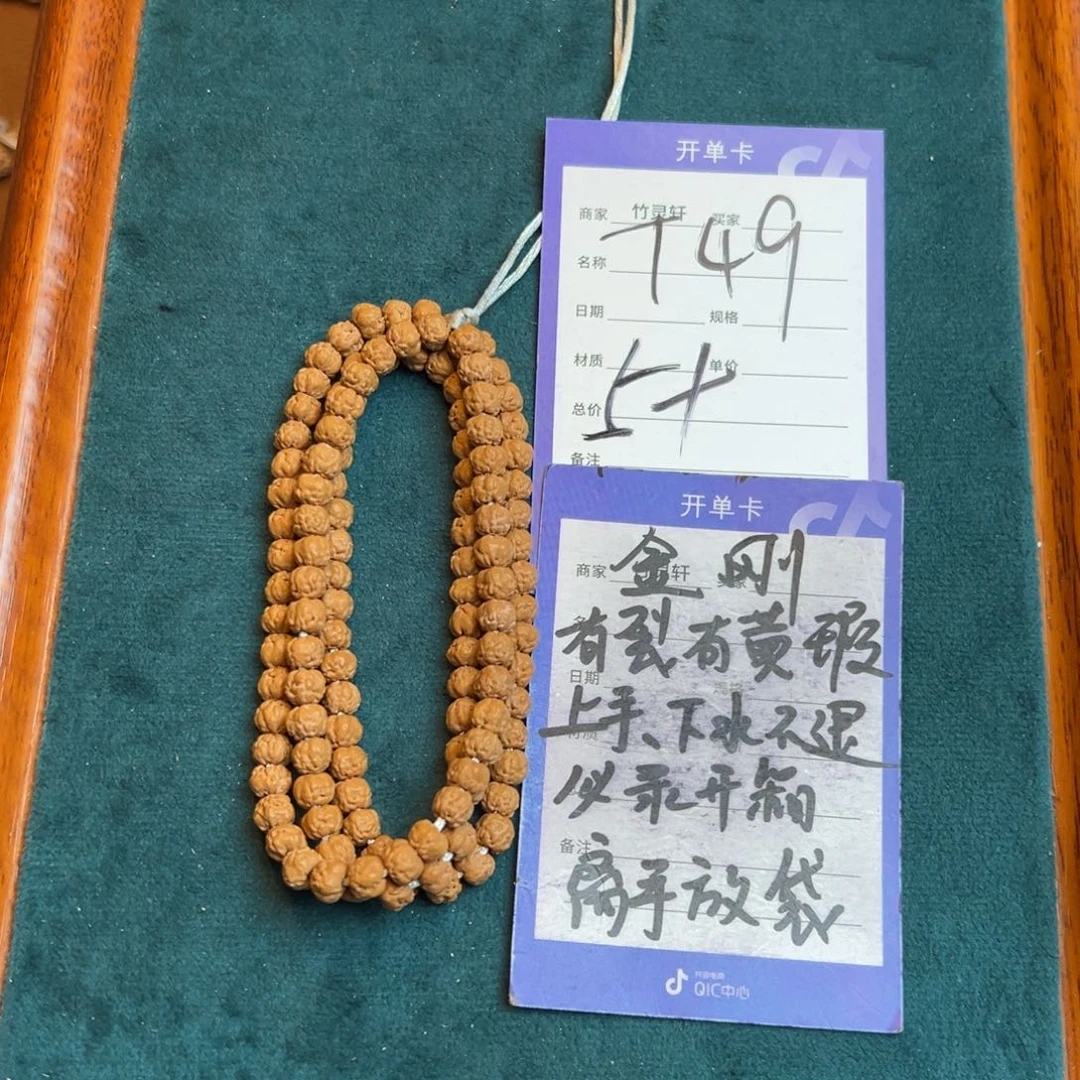 开单卡
商家 竹灵轩 买家
T49
名称
日期 规格
材质 单价
总价
备注
开单卡
商家 轩
金刚
有裂有黄瑕
日期
上手、下水不退
必录开箱
备注
离手放袋
抖音电商
QIC中心